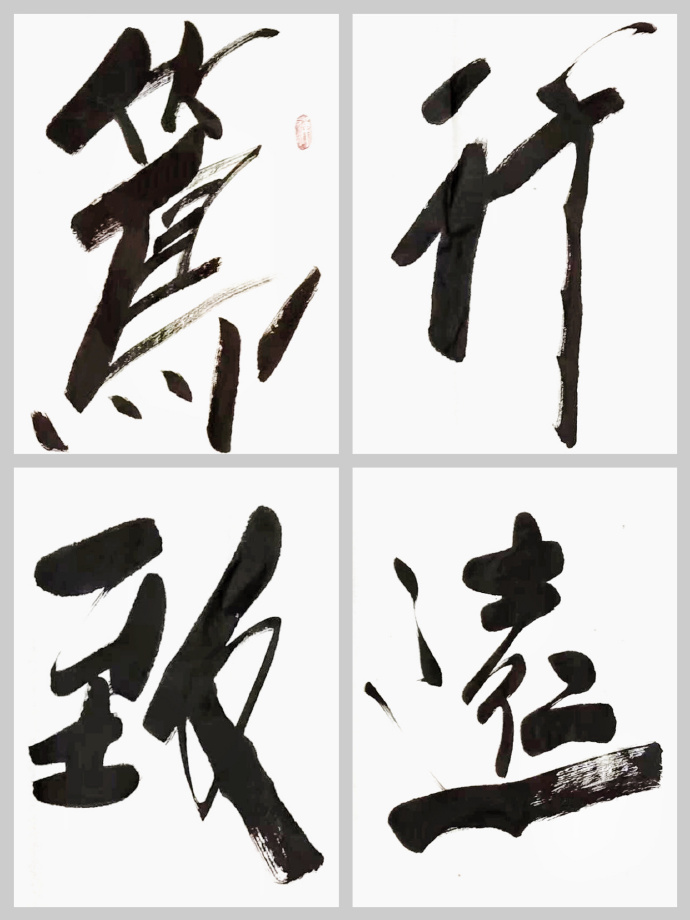 篤行
致遠